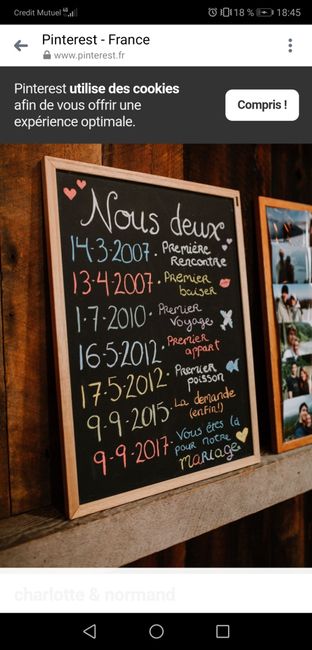 Credit Mutuel 4G 18 % 18:45
Pinterest - France
www.pinterest.fr
Pinterest utilise des cookies
afin de vous offrir une
expérience optimale.
Compris !
Nous deux
14-3-2007. Première
Rencontre
13-4-2007. Premier
baiser
1-7-2010. Premier
voyage
16-5-2012. Premier
appart
17-5-2012. Premier
poisson
9-9-2015. La demande
(enfin!)
9-9-2017. Vous êtes là
pour notre
mariage
charlotte & normand